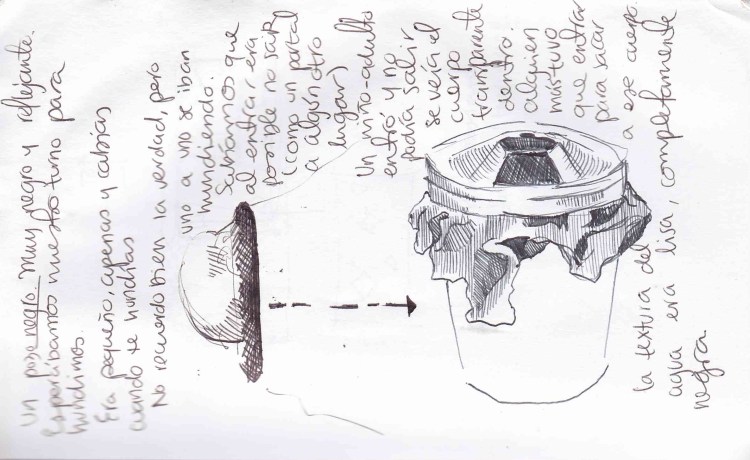 Un pozo negro muy negro y reflejante.
Esperábamos nuestro turno para
hundirnos.
Era pequeño, apenas y cabías
cuando te hundías
No recuerdo bien la verdad, pero
uno a uno se iban
hundiendo.
Sabíamos que
al entrar era
posible no salir
(como un portal
a algún otro
lugar)
Un niño-adulto
entró y no
podía salir
se veía el
cuerpo
transparente
dentro.
alguien
más tuvo
que entrar
para sacar
a ese cuerpo.
la textura del
agua era lisa, completamente
negra.